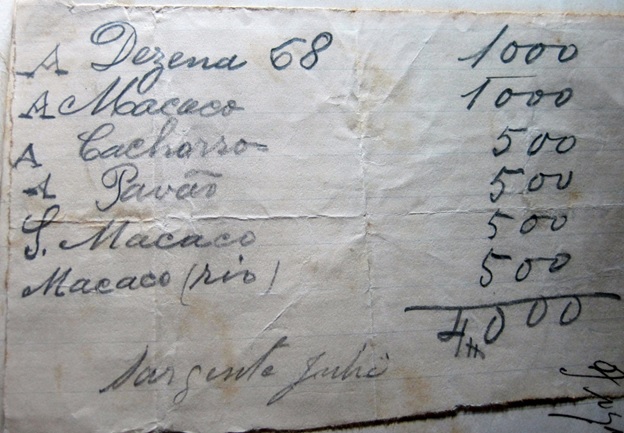 A Dezena 68 1000
A Macaco 1000
A Cachorro 500
A Pavão 500
S. Macaco 500
Macaco (rio) 500
4000
Sargento Julio